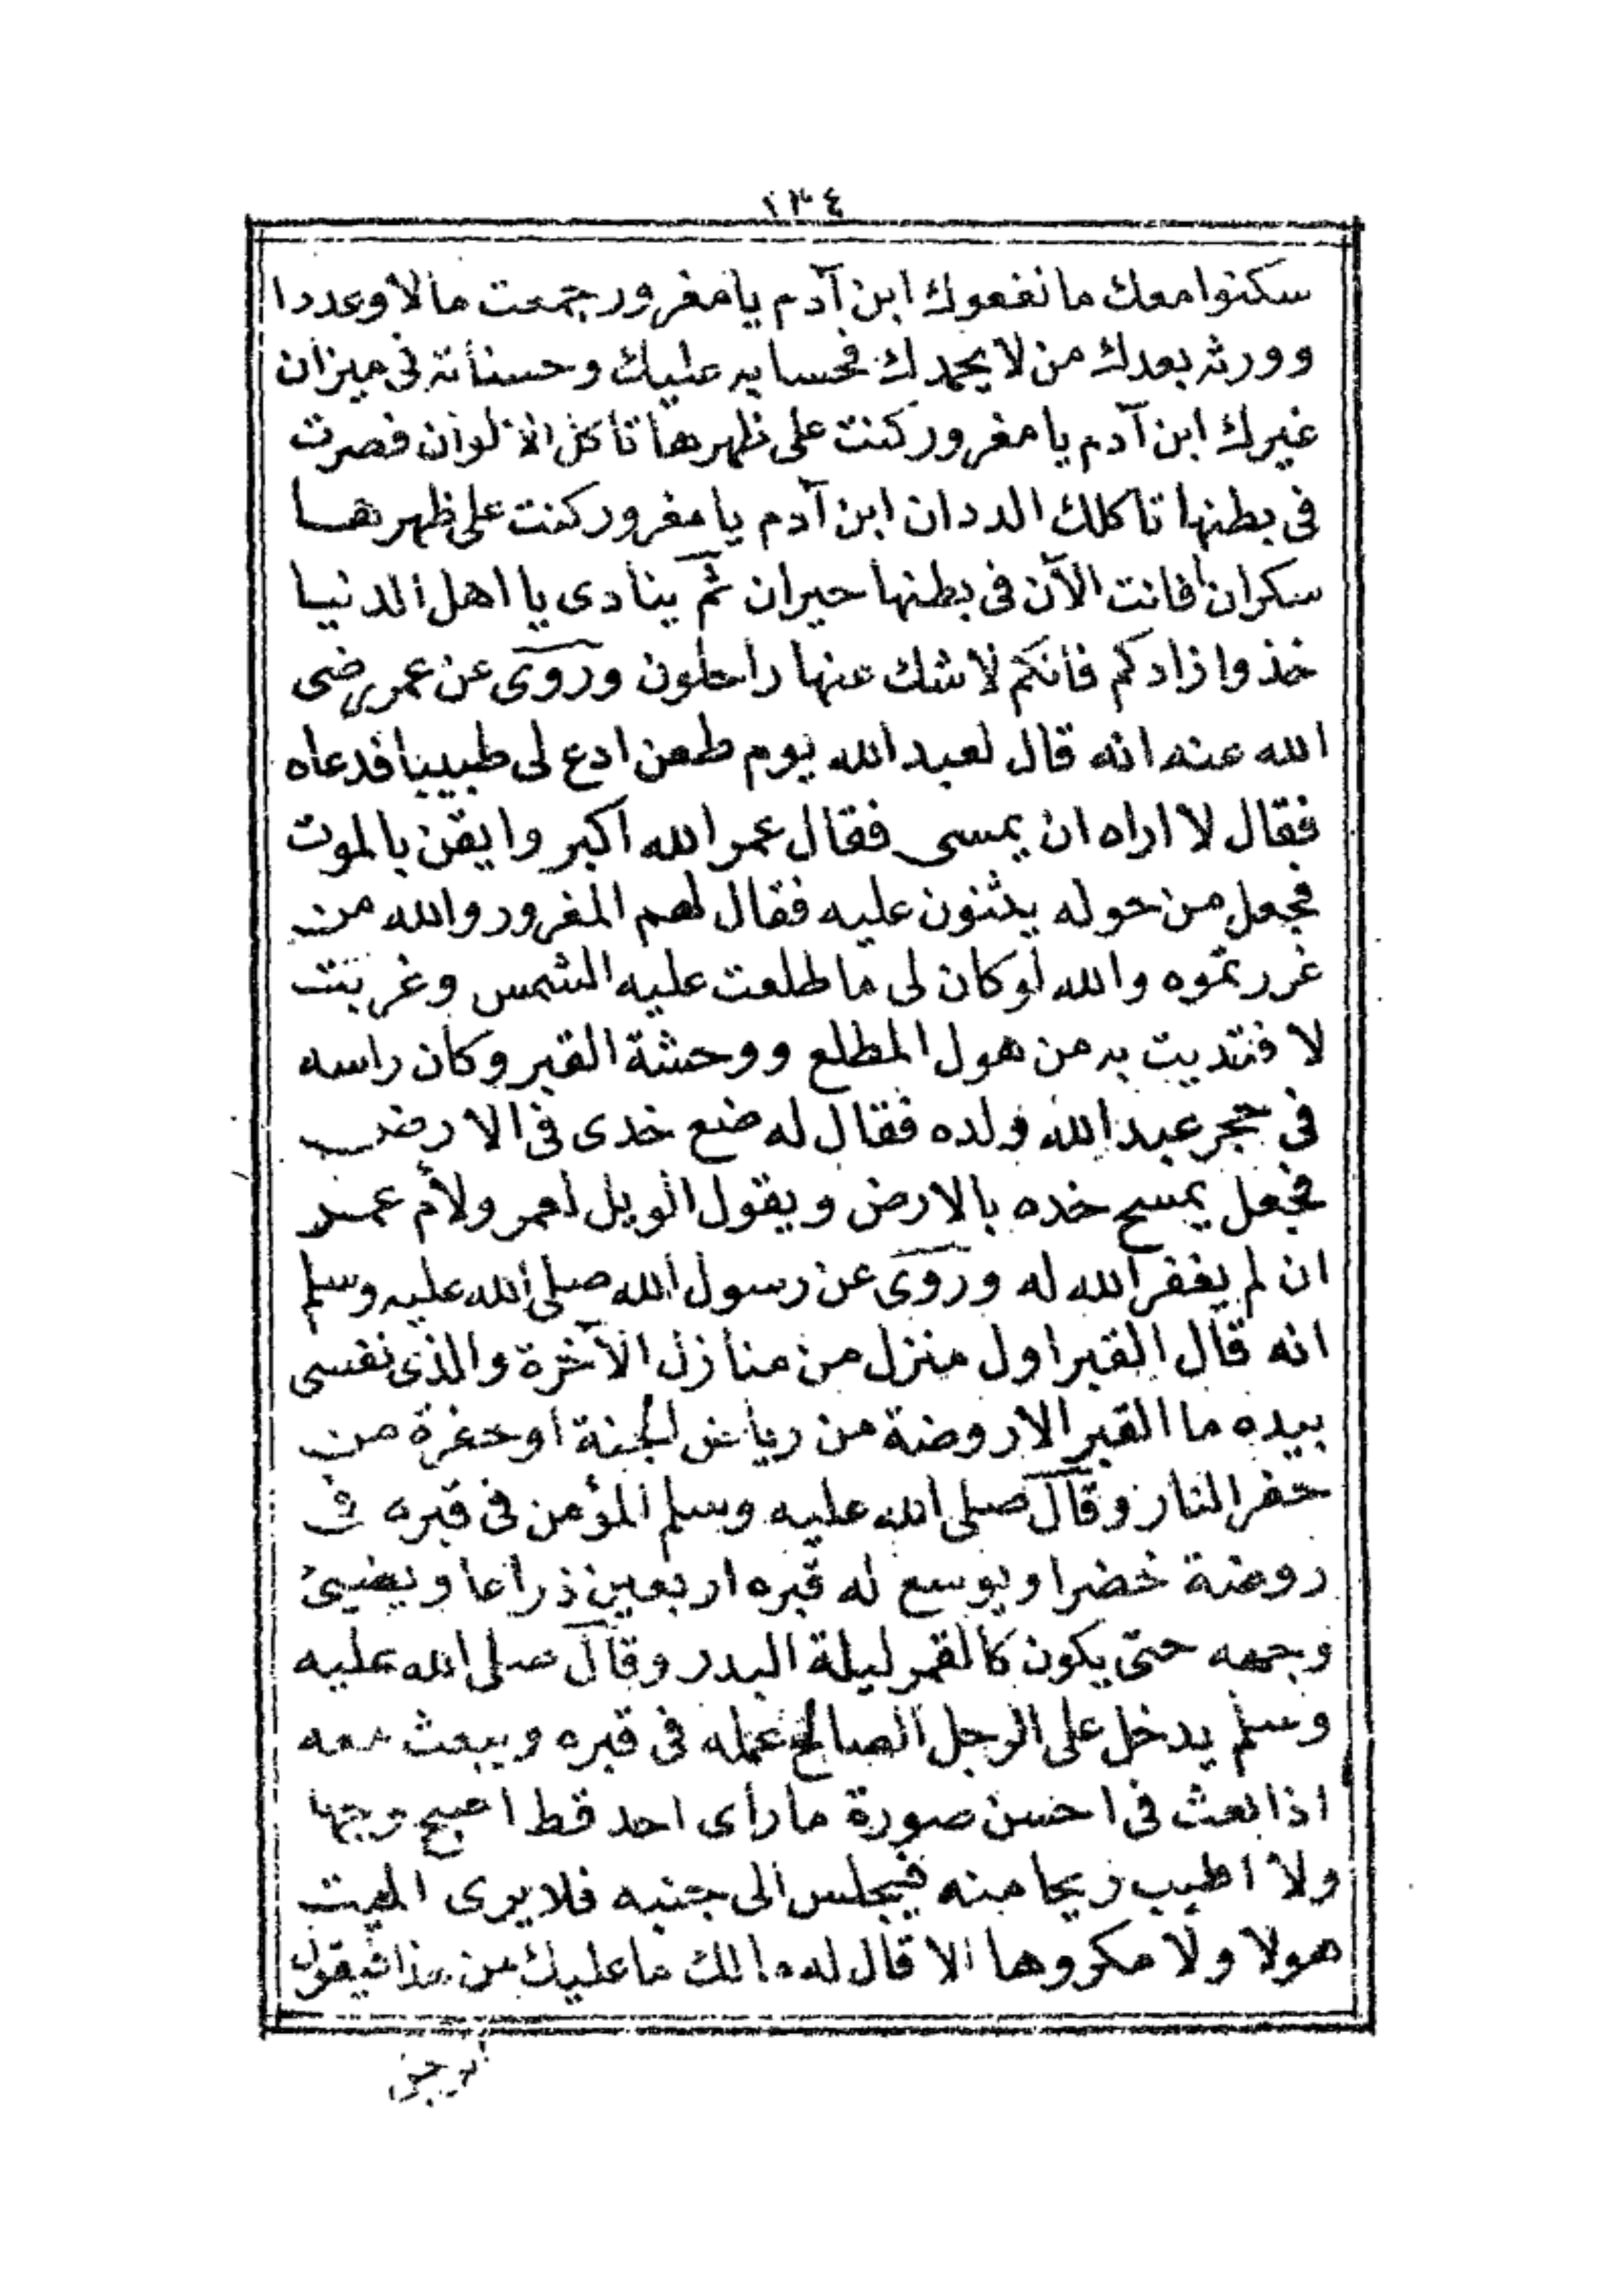 ١٣٤
سكنوا معك ما نفعوك ابن آدم يا مغرور جمعت مالا وعددا
وورثه بعدك من لا يحمدك فحسابه عليك وحسناته فى ميزان
غيرك ابن آدم يا مغرور كنت على ظهرها تاكل الالوان فصرت
فى بطنها تاكلك الددان ابن آدم يا مغرور كنت على ظهرها
سكران فانت الآن فى بطنها حيران ثم ينادى يا اهل الدنيا
خذوا زادكم فانكم لاشك عنها راحلون وروى عن عمر رضى
الله عنه انه قال لعبد الله يوم طعن ادع لى طبيبا فدعاه
فقال لا اراه ان يمسى فقال عمر الله اكبر وايقن بالموت
فجعل من حوله يثنون عليه فقال لهم المغرور والله من
غررتموه والله لو كان لى ما طلعت عليه الشمس وغربت
لافتديت به من هول المطلع ووحشة القبر وكان راسه
فى حجر عبد الله ولده فقال له ضع خدى فى الارض
فجعل يمسح خده بالارض ويقول الويل لعمر ولأم عمر
ان لم يغفر الله له وروى عن رسول الله صلى الله عليه وسلم
انه قال القبر اول منزل من منازل الآخرة والذى نفسى
بيده ما القبر الا روضة من رياض الجنة او حفرة من
حفر النار وقال صلى الله عليه وسلم المؤمن فى قبره فى
روضة خضرا ويوسع له قبره اربعين ذراعا ويضيئ
وجهه حتى يكون كالقمر ليلة البدر وقال صلى الله عليه
وسلم يدخل على الرجل الصالح عمله فى قبره ويبعث معه
اذا بعث فى احسن صورة ما راى احد قط اصبح وجها
ولا اطيب ريحا منه فيجلس الى جنبه فلا يرى الميت
هولا ولا مكروها الا قال له مالك ما عليك من هذا فيقول